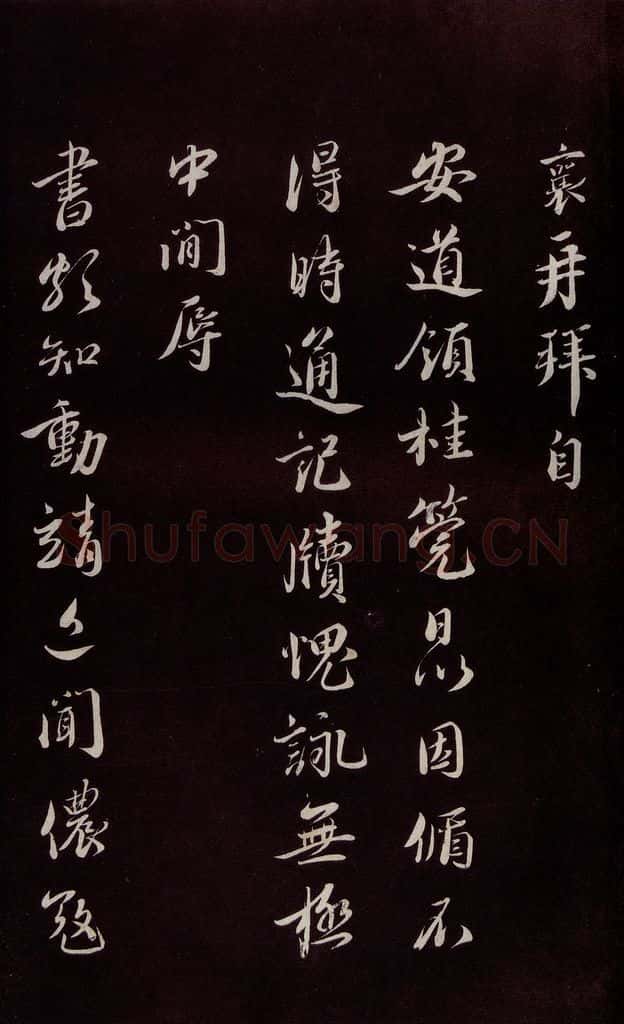 襄再拜自
安道領桂筦日以因循不
得時通記牘愧詠無極
中間辱
書頗知動靖近聞儂寇
Shufawang.CN